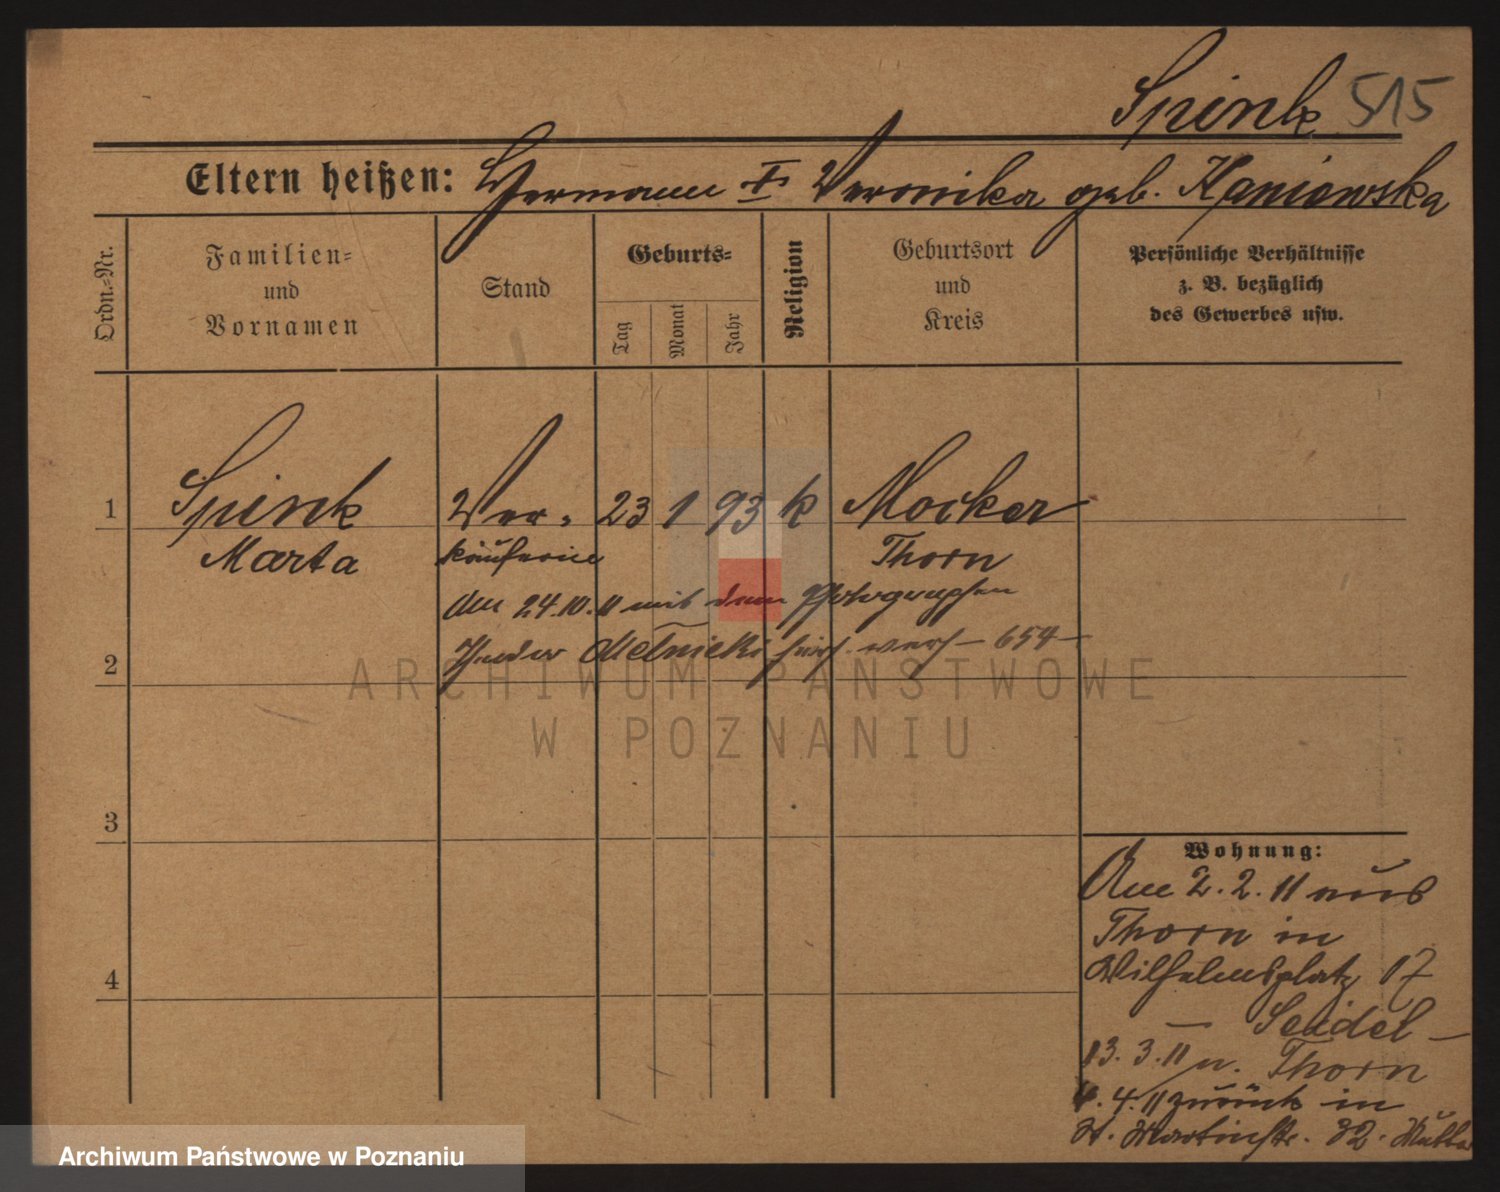 Spink 515
Eltern heißen: Hermann + Veronika geb. Kaniewska
Ordn.-Nr.
Familien-
und
Vornamen
Stand
Geburts-
Tag
Monat
Jahr
Religion
Geburtsort
und
Kreis
Persönliche Verhältnisse
z. B. bezüglich
des Gewerbes usw.
1 Spink Ver- 23 1 93 k Mocker
Marta käuferin Thorn
Am 24.10.11 mit dem Photographen
Melnicki hier verh 654
2
3
4
Wohnung:
Am 2. 2. 11 aus
Thorn in
Wilhelmsplatz 17
— Seidel —
13. 3. 11 n. Thorn
4. 4. 11 zurück in
St. Martinstr. 32.
ARCHIWUM PAŃSTWOWE
W POZNANIU
Archiwum Państwowe w Poznaniu